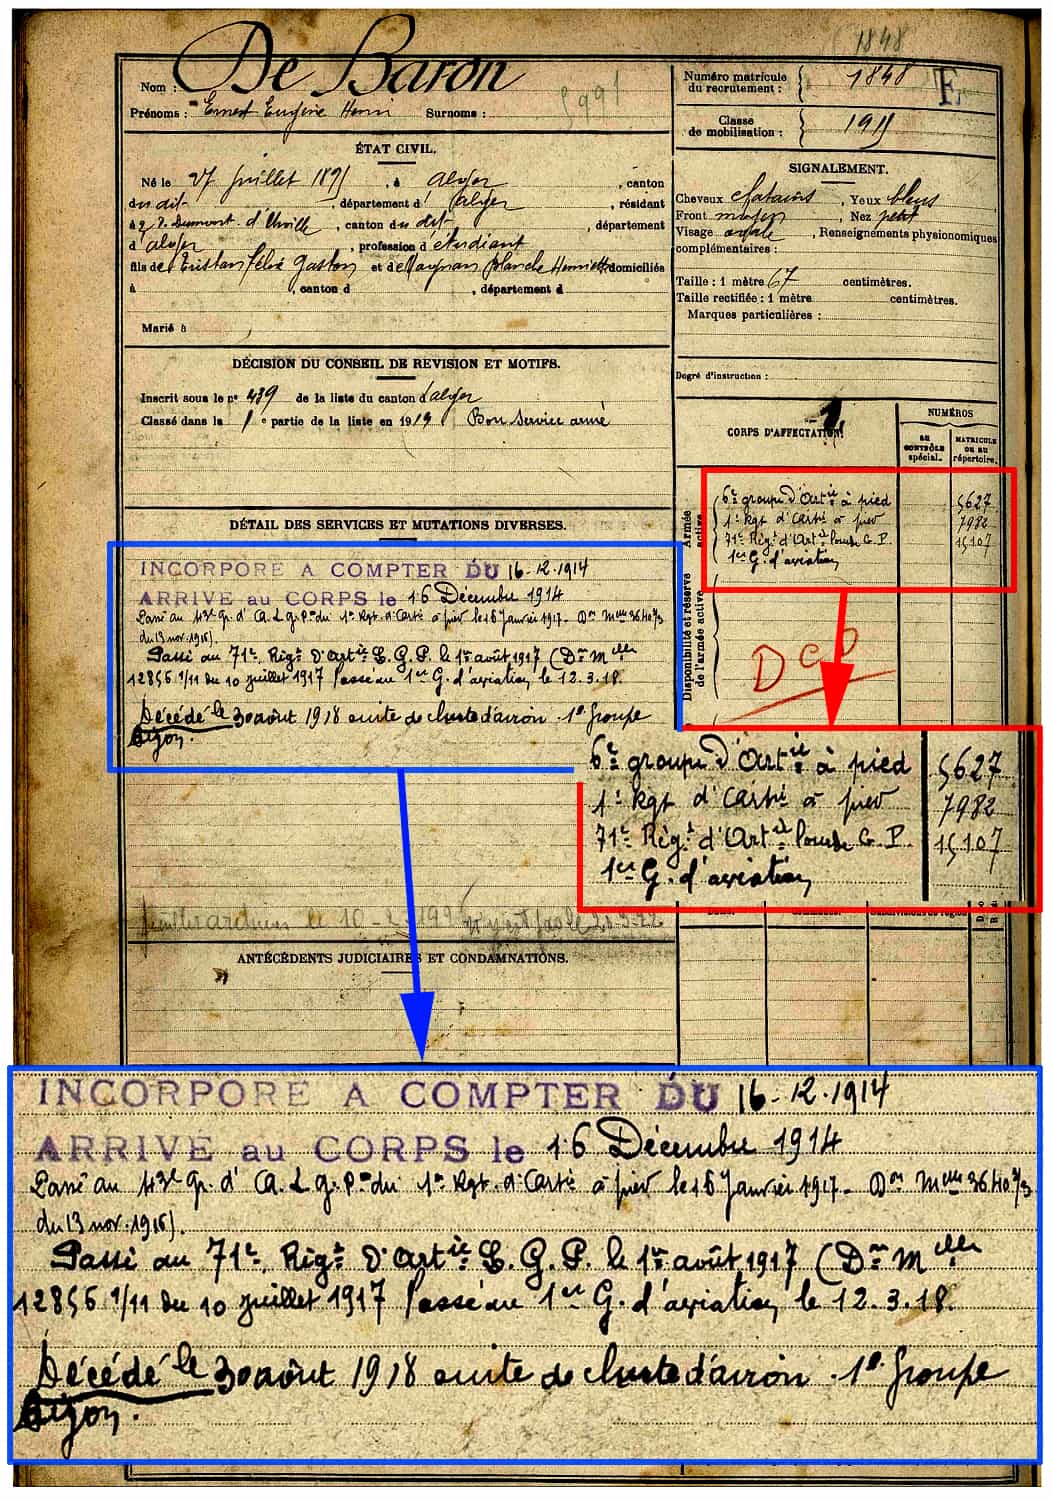 1848
De Baron
Nom :
Prénoms : Ernest Eugène Henri Surnoms :
5991
Numéro matricule du recrutement : 1848 E
Classe de mobilisation : 1915
ÉTAT CIVIL.
Né le 27 juillet 1895, à Alger, canton
du dit, département d'Alger, résidant
à 2 r. Dumont d'Urville, canton du dit, département
d'Alger, profession d'étudiant
fils de Tristan Félix Gaston et de Blanche Henriette domiciliés
à , canton d , département d
Marié à
SIGNALEMENT.
Cheveux chatains, Yeux bleus
Front moyen, Nez petit
Visage ovale, Renseignements physionomiques
complémentaires :
Taille : 1 mètre 67 centimètres.
Taille rectifiée : 1 mètre centimètres.
Marques particulières :
Degré d'instruction :
DÉCISION DU CONSEIL DE REVISION ET MOTIFS.
Inscrit sous le nº 439 de la liste du canton d'Alger
Classé dans la 1e partie de la liste en 1914 Bon Service armé
CORPS D'AFFECTATION.
NUMÉROS
AU CONTRÔLE spécial.
MATRICULE OU AU répertoire.
Armée active
6e groupe d'Artie à pied 5627
1r Rgt d'Artie à pied 7982
71e Rég.t d'Artie lourde G. P. 15107
1er G. d'aviation
Disponibilité et réserve de l'armée active
DCD
DÉTAIL DES SERVICES ET MUTATIONS DIVERSES.
INCORPORE A COMPTER DU 16-12.1914
ARRIVE au CORPS le 16 Décembre 1914
Passé au 43e Gr. d'A. L. G. P. du 1er Rgt. d'Artie à pied le 16 Janvier 1917 - Don Melle 36403/3
du 13 nov. 1916).
Passé au 71e Régt d'Artie L. G. P. le 1er août 1917 (Don Melle
12856 1/11 du 10 juillet 1917 Passé au 1er G. d'aviation le 12.3.18.
Décédé le 30 août 1918 suite de chute d'avion. 1er Groupe
Dijon.
6e groupe d'Artie à pied 5627
1r Rgt d'Artie à pied 7982
71e Rég.t d'Artie lourde G. P. 15107
1er G. d'aviation
le 10-2-
ANTÉCÉDENTS JUDICIAIRES ET CONDAMNATIONS.
INCORPORE A COMPTER DU 16-12.1914
ARRIVE au CORPS le 16 Décembre 1914
Passé au 43e Gr. d'A. L. G. P. du 1er Rgt. d'Artie à pied le 16 Janvier 1917 - Don Melle 36403/3
du 13 nov. 1916).
Passé au 71e Régt d'Artie L. G. P. le 1er août 1917 (Don Melle
12856 1/11 du 10 juillet 1917 Passé au 1er G. d'aviation le 12.3.18.
Décédé le 30 août 1918 suite de chute d'avion. 1er Groupe
Dijon.